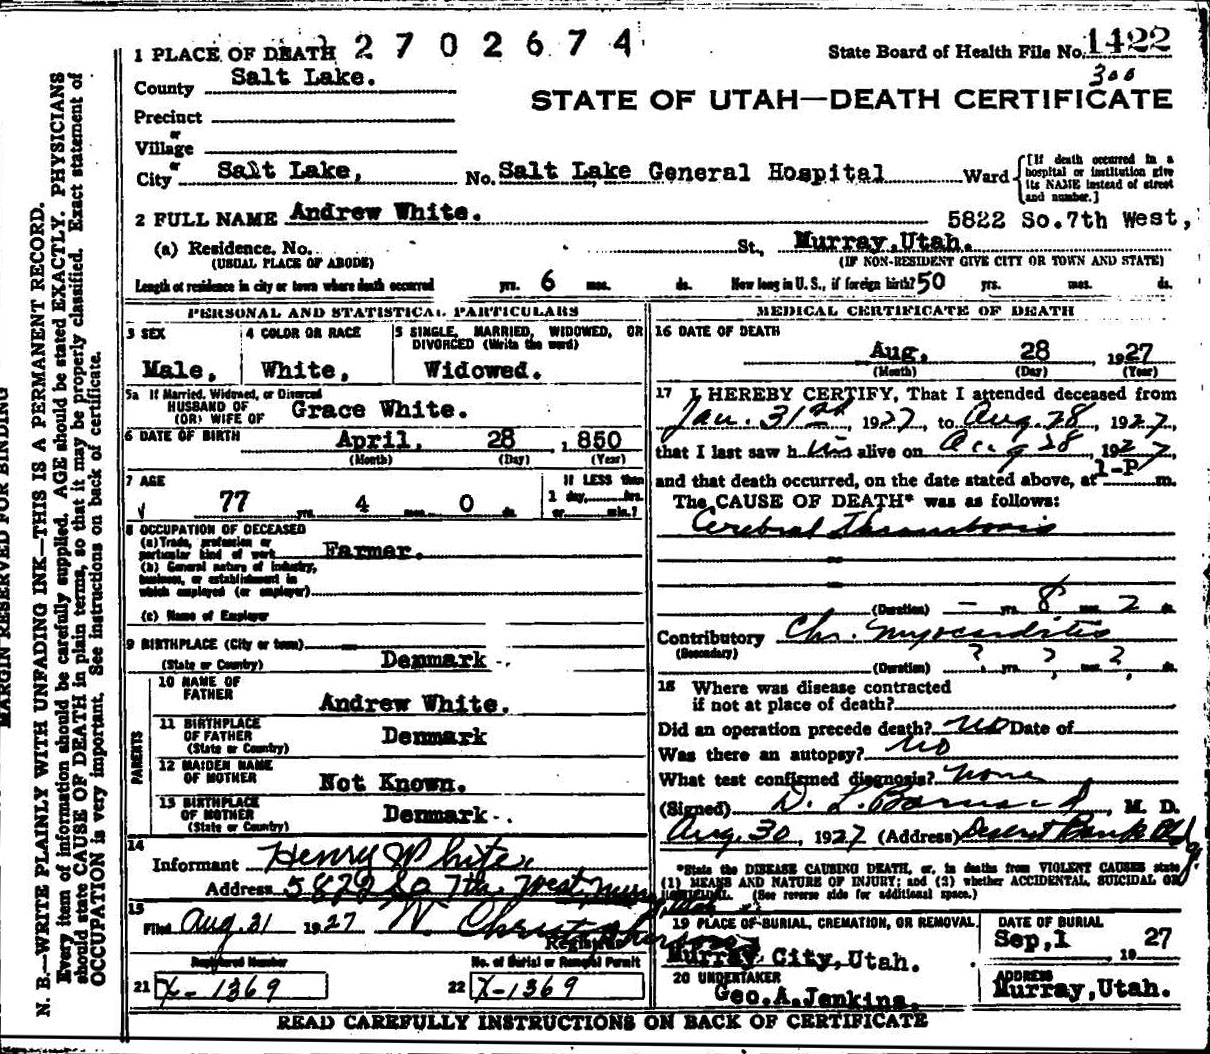 1 PLACE OF DEATH 2702674
State Board of Health File No. 1422
300
County Salt Lake.
STATE OF UTAH—DEATH CERTIFICATE
Precinct
or
Village
or
City Salt Lake, No. Salt Lake General Hospital Ward
[If death occurred in a
hospital or institution give
its NAME instead of street
and number.]
2 FULL NAME Andrew White.
5822 So.7th West,
(a) Residence, No. St., Murray,Utah.
(USUAL PLACE OF ABODE) (IF NON-RESIDENT GIVE CITY OR TOWN AND STATE)
Length of residence in city or town where death occurred yrs. 6 mos. ds. How long in U. S., if foreign birth? 50 yrs. mos. ds.
PERSONAL AND STATISTICAL PARTICULARS
3 SEX
Male,
4 COLOR OR RACE
White,
5 SINGLE, MARRIED, WIDOWED, OR
DIVORCED (Write the word)
Widowed.
5a If Married, Widowed, or Divorced
HUSBAND OF
(OR) WIFE OF
Grace White.
6 DATE OF BIRTH April, 28 ,1850
(Month) (Day) (Year)
7 AGE
77 yrs. 4 mos. 0 ds.
If LESS than
1 day, hrs.
or min.?
8 OCCUPATION OF DECEASED
(a) Trade, profession or
particular kind of work Farmer.
(b) General nature of industry,
business, or establishment in
which employed (or employer)
(c) Name of Employer
9 BIRTHPLACE (City or town)
(State or Country) Denmark
PARENTS
10 NAME OF
FATHER
Andrew White.
11 BIRTHPLACE
OF FATHER
(State or Country)
Denmark
12 MAIDEN NAME
OF MOTHER
Not Known.
13 BIRTHPLACE
OF MOTHER
(State or Country)
Denmark
14
Informant Henry White
Address 5822 So 7th West, Murray, Utah
15
Filed Aug. 31 1927
Registrar
Registered Number
21 X-1369
No. of Burial or Removal Permit
22 X-1369
MEDICAL CERTIFICATE OF DEATH
16 DATE OF DEATH
Aug. 28 1927
(Month) (Day) (Year)
17 I HEREBY CERTIFY, That I attended deceased from
Jan. 31st, 1927, to Aug. 28, 1927,
that I last saw him alive on Aug 28, 1927,
and that death occurred, on the date stated above, at 1-P m.
The CAUSE OF DEATH* was as follows:
Cerebral Thrombosis
(Duration) — yrs. 8 mos. 2 ds.
Contributory Chr. Myocarditis
(Secondary)
(Duration) ? yrs. ? mos. ? ds.
18 Where was disease contracted
if not at place of death?
Did an operation precede death? No Date of
Was there an autopsy? No
What test confirmed diagnosis? None
(Signed) D. L. Barnard, M. D.
Aug. 30, 1927 (Address) Deseret Bank Bldg.
*State the DISEASE CAUSING DEATH, or, in deaths from VIOLENT CAUSES state
(1) MEANS AND NATURE OF INJURY; and (2) whether ACCIDENTAL, SUICIDAL OR
HOMICIDAL. (See reverse side for additional space.)
19 PLACE OF BURIAL, CREMATION, OR REMOVAL
Murray City,Utah.
DATE OF BURIAL
Sep,1 1927
20 UNDERTAKER
Geo.A.Jenkins,
ADDRESS
Murray,Utah.
READ CAREFULLY INSTRUCTIONS ON BACK OF CERTIFICATE
MARGIN RESERVED FOR BINDING
N. B.—WRITE PLAINLY WITH UNFADING INK—THIS IS A PERMANENT RECORD.
Every item of information should be carefully supplied. AGE should be stated EXACTLY. PHYSICIANS
should state CAUSE OF DEATH in plain terms, so that it may be properly classified. Exact statement of
OCCUPATION is very important. See instructions on back of certificate.